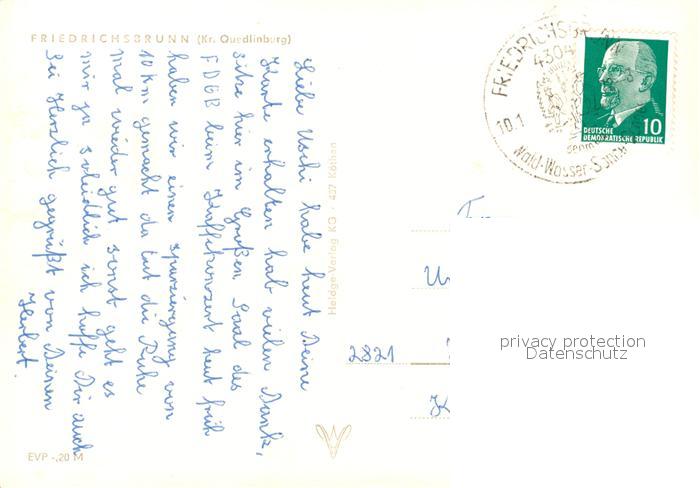 FRIEDRICHSBRUNN (Kr. Quedlinburg)
Liebe Uschi habe heut Deine
Karte erhalten hab vielen Dank,
sitze hier im Großen Saal des
FDGB beim Kaffeekonzert heut früh
haben wir einen spaziergang von
10 km gemacht da tut die Ruhe
mal wieder gut sonst geht es
mir ja soleidlich ich hoffe Dir auch
Sei Herzlich gegrüßt von Deinen
Herbert.
EVP -,20 M
Heldge-Verlag KG · 437 Köthen
FRIEDRICHSBRUNN
4304
10.1
Wald-Wasser-Sonne
DEUTSCHE
DEMOKRATISCHE REPUBLIK
10
2821
privacy protection
Datenschutz